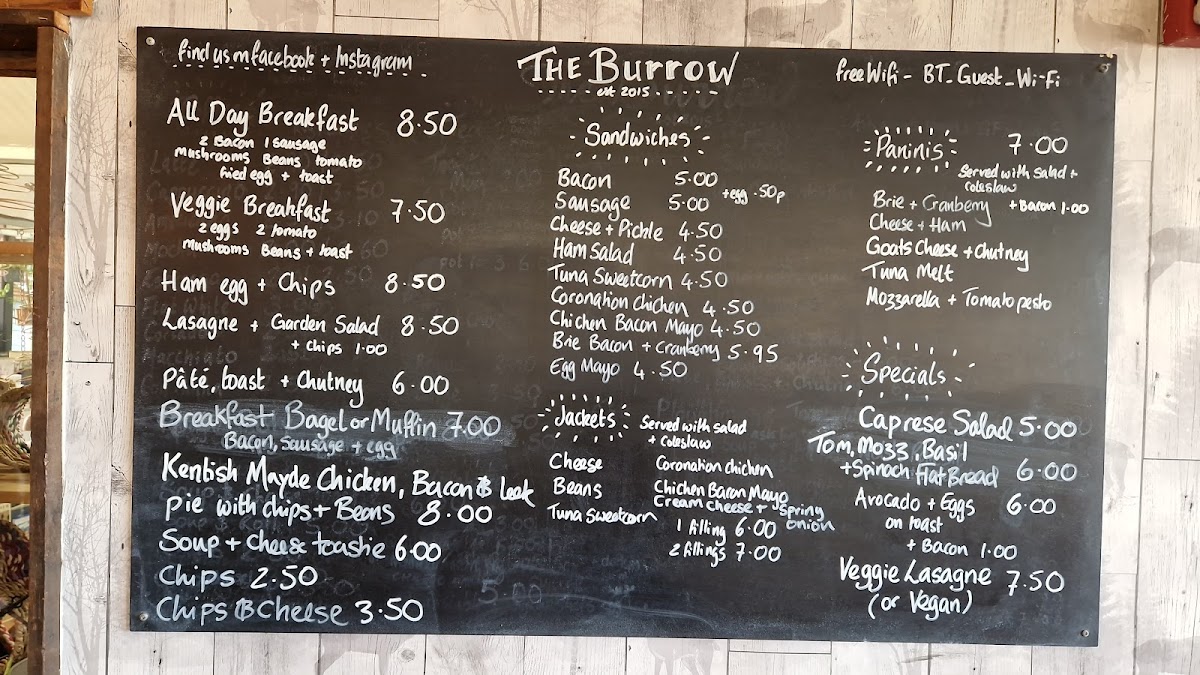 find us on facebook + Instagram
THE BURROW
est 2015
free Wifi - BT-Guest-Wi-Fi
All Day Breakfast 8.50
2 Bacon 1 sausage
Mushrooms Beans tomato
fried egg + toast
Veggie Breakfast 7.50
2 eggs 2 tomato
Mushrooms Beans + toast
Ham egg + Chips 8.50
Lasagne + Garden Salad 8.50
+ Chips 1.00
Pâté, toast + Chutney 6.00
Breakfast Bagel or Muffin 7.00
Bacon, Sausage + egg
Kentish Mayde Chicken, Bacon & Leek
pie with chips + Beans 8.00
Soup + Cheese toastie 6.00
Chips 2.50
Chips & Cheese 3.50
Sandwiches
Bacon 5.00
Sausage 5.00
+ egg .50p
Cheese + Pickle 4.50
Ham Salad 4.50
Tuna Sweetcorn 4.50
Coronation chicken 4.50
Chicken Bacon Mayo 4.50
Brie Bacon + Cranberry 5.95
Egg Mayo 4.50
Jackets Served with salad
+ Coleslaw
Cheese
Beans
Tuna Sweetcorn
Coronation chicken
Chicken Bacon Mayo
Cream cheese + spring
onion
1 filling 6.00
2 fillings 7.00
Paninis 7.00
Served with Salad +
Coleslaw
Brie + Cranberry + Bacon 1.00
Cheese + Ham
Goats Cheese + Chutney
Tuna Melt
Mozzarella + Tomato pesto
Specials
Caprese Salad 5.00
Tom, Mozz, Basil
+ Spinach Flat Bread 6.00
Avocado + Eggs 6.00
on toast
+ Bacon 1.00
Veggie Lasagne 7.50
(or Vegan)